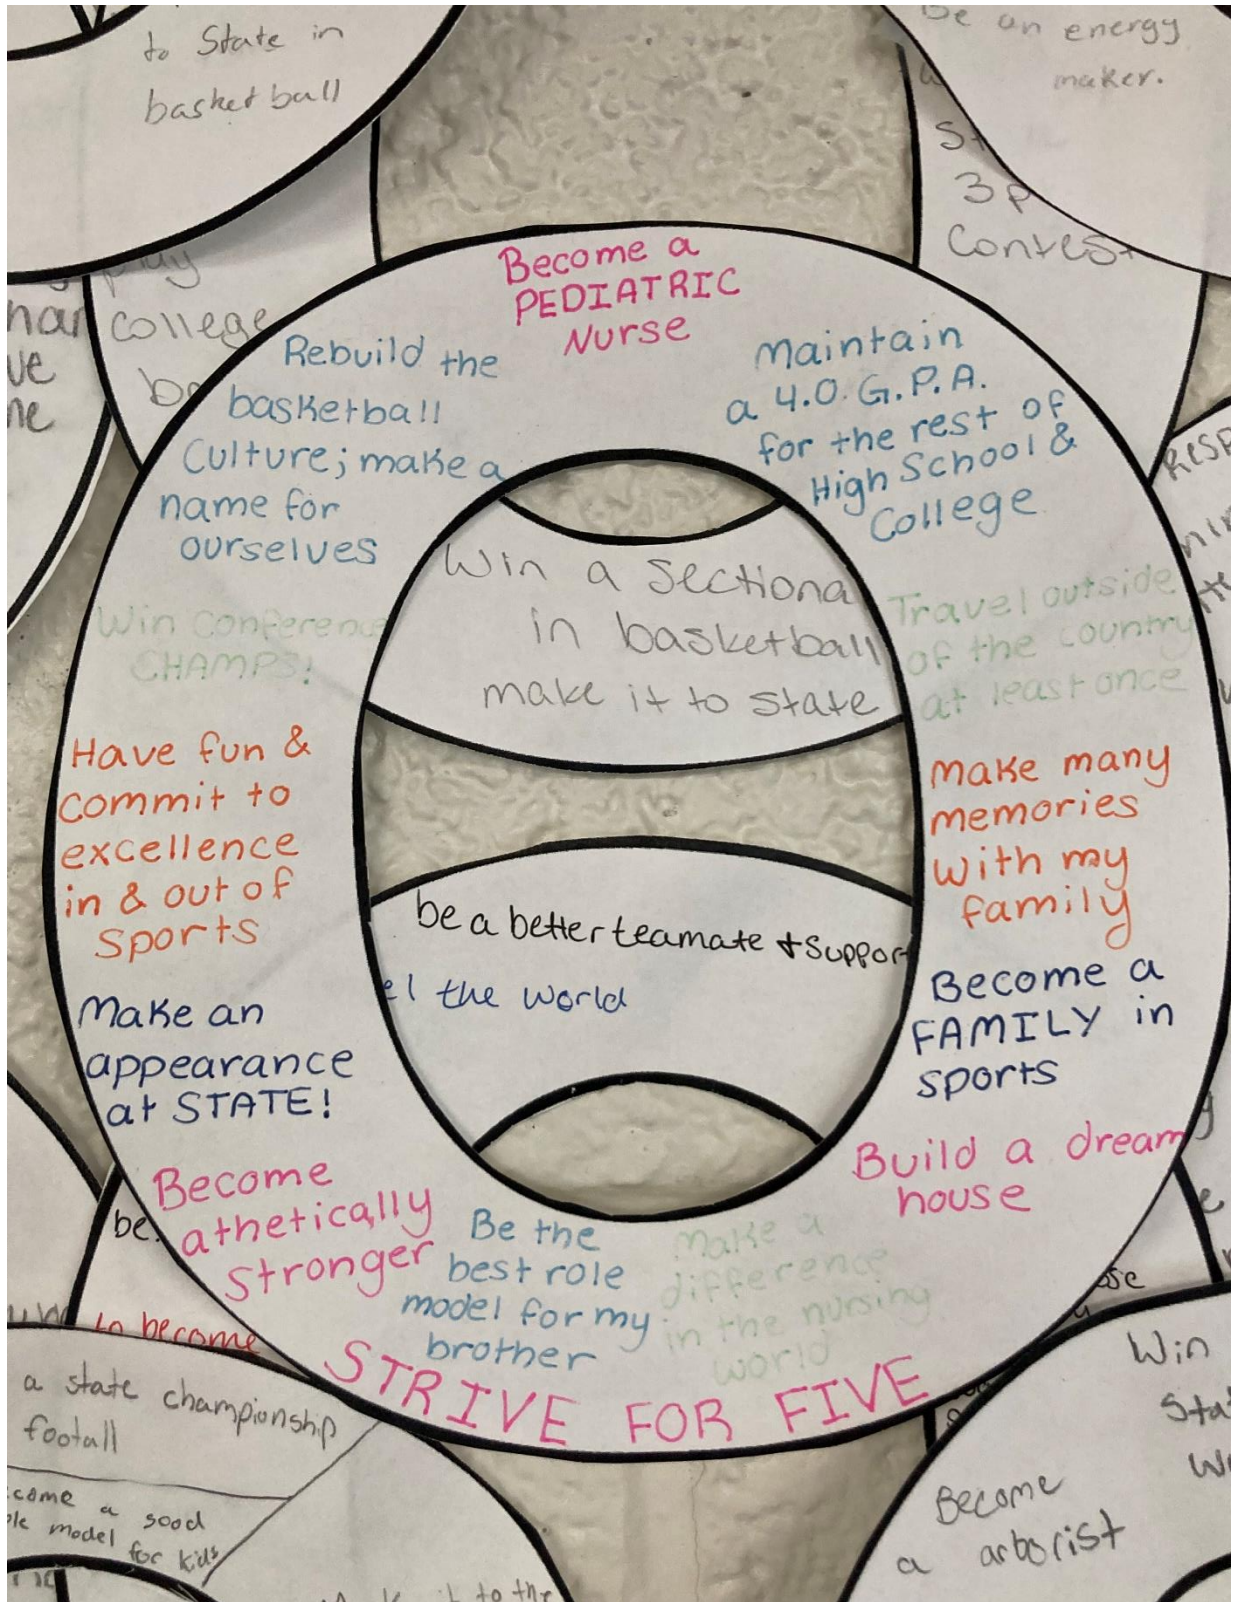 to State in
basketball
Be an energy
maker.
3 p
Contest
play
college
Become a
PEDIATRIC
Nurse
Rebuild the
basketball
Culture; make a
name for
ourselves
Maintain
a 4.0. G.P.A.
for the rest of
High School &
College
Win Conference
CHAMPS!
Win a Sectiona
in basketball
make it to state
Travel outside
of the country
at least once
Have fun &
commit to
excellence
in & out of
sports
Make many
memories
with my
family
be a better teamate + suppor
el the world
Make an
appearance
at STATE!
Become a
FAMILY in
sports
Become
athetically
Stronger
Be the
best role
model for my
brother
Make a
difference
in the nursing
world
Build a dream
house
STRIVE FOR FIVE
be
to become
a state championship
footall
come a good
ole model for kids
Make it to the
Win
Sta
Become
a arborist